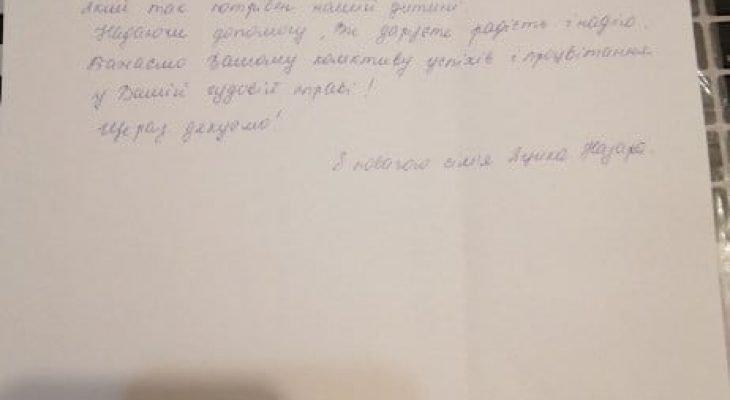 який так потрібен нашій дитині.
Надаючи допомогу, Ви даруєте радість і надію.
Бажаємо Вашому колективу успіхів і процвітання
у Вашій чудовій праві!
Ще раз дякуємо!
З повагою сім'я Яцика Назара.